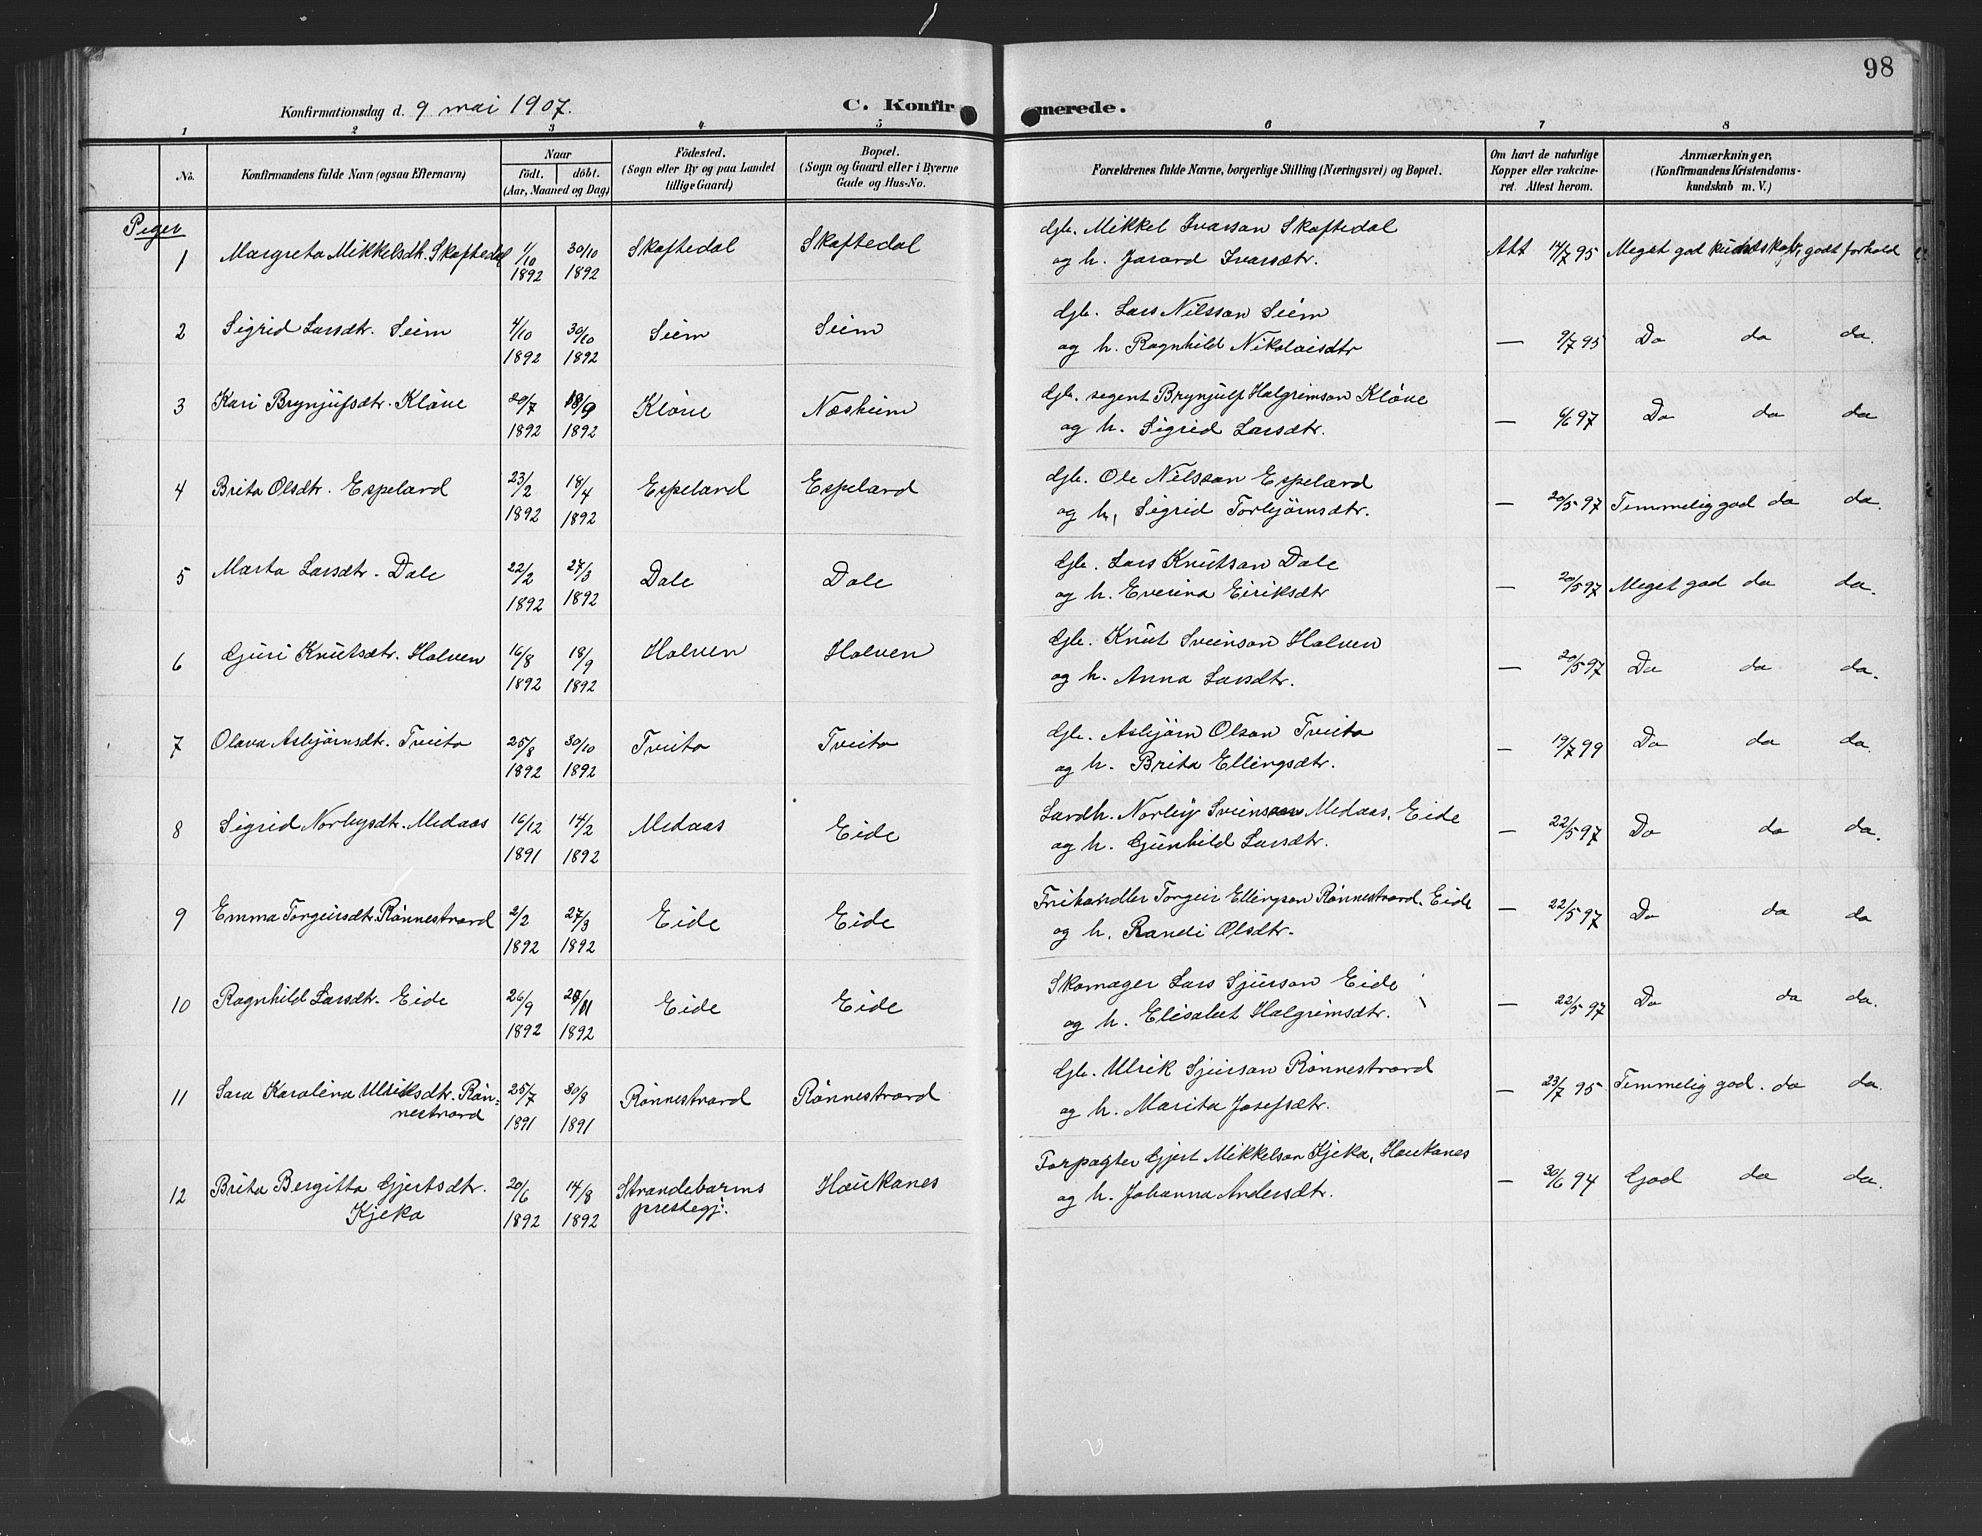 98
Konfirmationsdag d. 9 mai 1907. C. Konfirmerede.
1 2 3 4 5 6 7 8
No. Konfirmandens fulde Navn (ogsaa Efternavn) Naar födt. döbt. (Aar, Maaned og Dag) Födested. (Sogn eller By og paa Landet tillige Gaard) Bopæl. (Sogn og Gaard eller i Byerne Gade og Hus-No. Forældrenes fulde Navne, borgerlige Stilling (Næringsvei) og Bopæl. Om havt de naturlige Kopper eller vakcineret. Attest herom. Anmærkninger. (Konfirmandens Kristendomskundskab m. V.)
Piger
1 Margreta Mikkelsdtr. Skaftedal 1/10 1892 30/10 1892 Skaftedal Skaftedal Gbr. Mikkel Ivarson Skaftedal
og h. Jorand Ivarsdtr. Att 14/7 95 Meget god kundskab, godt forhold
2 Sigrid Larsdtr. Seim 4/10 1892 30/10 1892 Seim Seim Gbr. Lars Nilsson Seim
og h. Ragnhild Nikolaisdtr — 9/7 95 Do da da.
3 Kari Brynjulfsdtr. Kløve 20/7 1892 18/9 1892 Kløve Næsheim Gbr. Brynjulf Halgrimson Kløve
og h. Sigrid Larsdtr. — 6/6 97 Do da da
4 Brita Olsdtr. Espeland 23/2 1892 18/4 1892 Espeland Espeland Gbr. Ole Nilsson Espeland
og h. Sigrid Torbjørnsdtr. — 20/5 97 Temmelig god da da.
5 Marta Larsdtr. Dale 22/2 1892 27/3 1892 Dale Dale Gbr. Lars Knutson Dale
og h. Everina Eiriksdtr — 20/5 97 Meget god da da.
6 Guri Knutsdtr. Halven 16/8 1892 18/9 1892 Halven Halven Gbr. Knut Sveinson Halven
og h. Anna Larsdtr. — 20/5 97 Do da da.
7 Olava Asbjørnsdtr. Tveito 25/8 1892 30/10 1892 Tveito Tveito Gbr. Asbjørn Olson Tveito
og h. Brita Ellingsdtr. — 19/7 99 Do da da.
8 Sigrid Norleysdtr. Medaas 16/12 1891 14/2 1892 Medaas Eide Landh. Norleiv Sveinson Medaas, Eide
og h. Gunhild Larsdtr. — 22/5 97 Do da da.
9 Emma Torgeirsdtr. Rønnestrand 2/2 1892 27/3 1892 Eide Eide Frihandler Torgeir Ellingson Rønnestrand, Eide
og h. Randi Olsdtr. — 22/5 97 Do da da
10 Ragnhild Larsdtr. Eide 26/9 1892 1892 Eide Eide Skomager Lars Sjurson Eide
og h. Elisabet Halgrimsdtr. — 22/5 97 Do da da.
11 Sara Karolina Ulriksdtr. Røn-
nestrand 25/7 1891 30/8 1891 Rønnestrand Rønnestrand Gbr. Ulrik Sjurson Rønnestrand
og h. Marita Josefsdtr. — 23/7 95 Temmelig god. da da.
12 Brita Bergitta Gjertsdtr.
Kjeka 20/6 1892 14/8 1892 Strandebarms
prestegj. Haukanes Forpagter Gjert Mikkelson Kjeka, Haukanes
og h. Johanna Andersdtr. — 30/6 94 God da da.